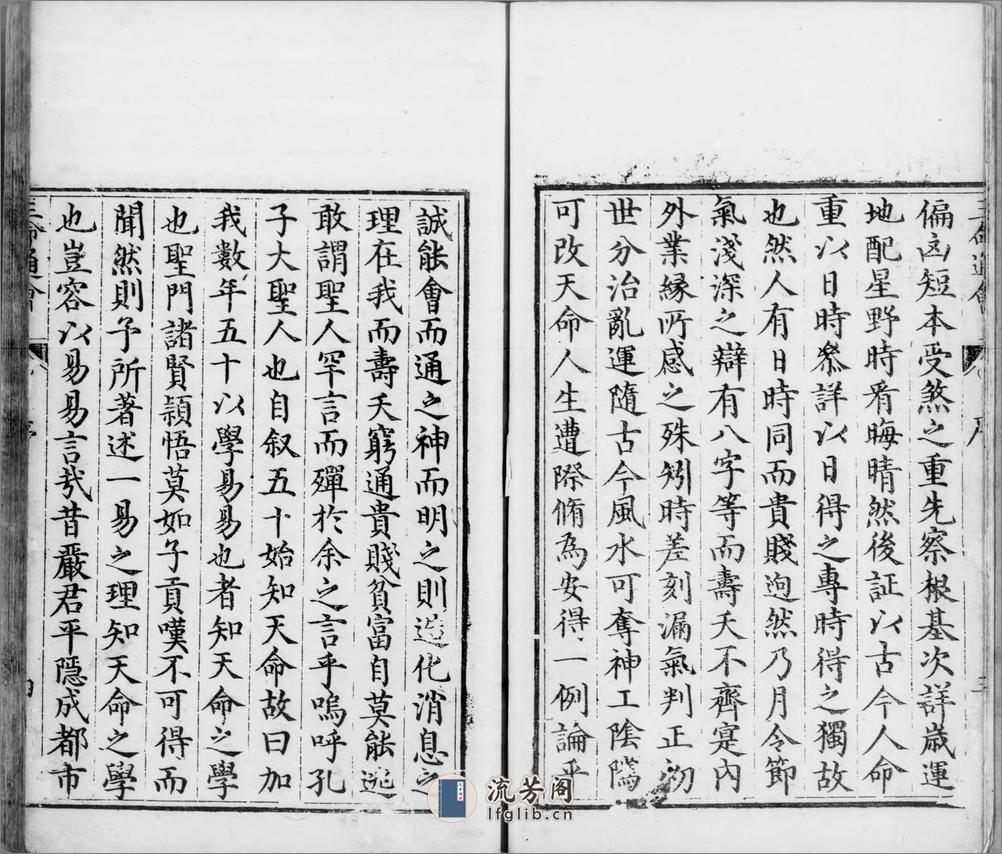 三命通會 序 三
偏凶短本受煞之重先察根基次詳歲運
地配星野時看晦晴然後証以古今人命
重以日時叅詳以日得之專時得之獨故
也然人有日時同而貴賤逈然乃月令節
氣淺深之辯有八字等而壽夭不齊寔內
外業縁所感之殊矧時差刻漏氣判正初
世分治亂運隨古今風水可奪神工陰隲
可改天命人生遭際脩為安得一例論乎
誠能會而通之神而明之則造化消息之
理在我而壽夭窮通貴賤貧富自莫能逃
敢謂聖人罕言而殫於余之言乎嗚呼孔
子大聖人也自叙五十始知天命故曰加
我數年五十以學易易也者知天命之學
也聖門諸賢頴悟莫如子貢嘆不可得而
聞然則予所著述一易之理知天命之學
也豈容以易易言哉昔嚴君平隱成都市
三命通會 序 四
流芳阁
lfglib.cn